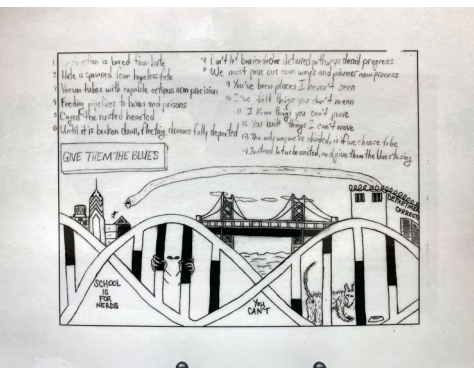 1 Destruction is bored from hate
2 Hate is spawned from hopeless fate
3 Vacuum tubes with capable octopus arm precision
4 Feeding captives to boxes and prisons
5 Caged the rusted hearted
6 Until it is broken down, fleeting dreams fully departed
7 Can't let barricades detoured pathways derail progress
8 We must pave our own ways and pioneer new process
9 You've been places I haven't seen
10 I've felt things you don't mean
11 I know things you can't prove
12 You built things I can't move
13 The only way we're divided, is if we choose to be
14 Instead let us be united, and give them the blues to sing
GIVE THEM THE BLUES
SCHOOL
IS
FOR
NERDS
YOU
CAN'T